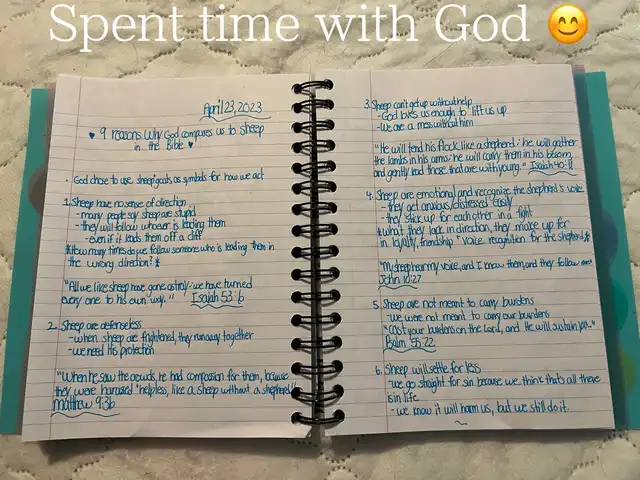 Spent time with God 😊
April 23, 2023
♥ 9 reasons why God compares us to sheep
in the Bible ♥
• God chose to use sheep/goats as symbols for how we act
1. Sheep have no sense of direction
- many people say sheep are stupid
- they will follow whoever is leading them
- even if it leads them off a cliff
*How many times do we follow someone who is leading them in
the wrong direction?*
"All we like sheep have gone astray: we have turned
every one to his own way." Isaiah 53:6
2. Sheep are defenseless
- when sheep are frightened, they run away together
- we need His protection
"When he saw the crowds, he had compassion for them, because
they were harassed helpless, like a sheep without a shepherd"
Matthew 9:36
3. Sheep can't get up without help
- God loves us enough to lift us up
- we are a mess without him
"He will tend his flock like a shepherd: he will gather
the lambs in his arms: he will carry them in his bosom,
and gently lead those that are with young." Isaiah 40:11
4. Sheep are emotional and recognize the shepherd's voice
- they get anxious/distressed easily
- they stick up for each other in a fight
*what they lack in direction, they make up for
in loyalty, friendship & voice recognition for the shepherd*
"My sheep hear my voice, and I know them, and they follow me"
John 10:27
5. Sheep are not meant to carry burdens
- we were not meant to carry our burdens
"Cast your burdens on the Lord, and He will sustain you."
Psalm 55:22
6. Sheep will settle for less
- we go straight for sin because we think that's all there
is in life
- we know it will harm us, but we still do it.